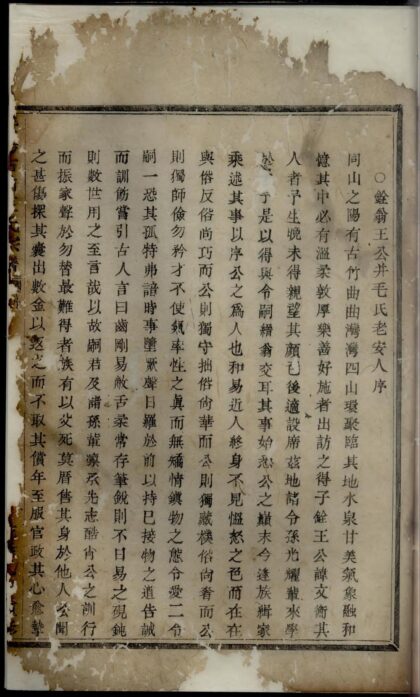 ○銓翁王公并毛氏老安人序
同山之陽有古竹曲曲灣灣四山環聚臨其地水泉甘美氣象融和
憶其中必有溫柔敦厚樂善好施者出訪之得子銓王公諱文衡其
人者予生晚未得親望其顏已後適設席茲地儲令孫光耀載來學
於予是以得與令嗣縉翁交耳其事始悉公之顛末今逢族緝家
乘述其事以序公之爲人也和易近人終身不見慍怒之色而在在
與俗反俗尚巧而公則獨守拙俗尚華而公則獨藏樸俗尚奢而公
則獨師儉勿矜才不使氣率性之眞而無矯情鎭物之態令愛二令
嗣一恐其孤特弗諳時事墮厥聲日羅於前以持已接物之道告誡
而訓飭嘗引古人言曰齒剛易敝舌柔常存筆銳則不日易之硯鈍
則數世用之至言哉以故嗣君及諸孫輩濟光志酷肖公之訓行
而振家聲於勿替最難得者族有以炎死莫厝售其身於他人公聞
之甚傷探其囊出數金以返之而不取其償年至服官政其心愈摯